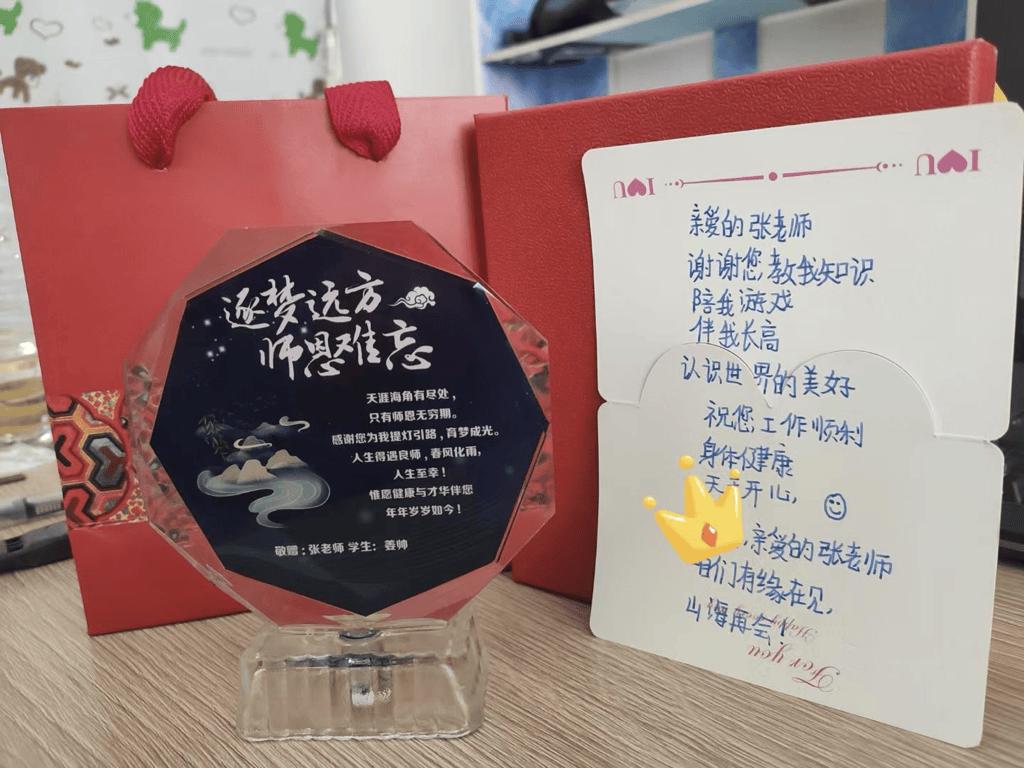 逐梦远方
师恩难忘
天涯海角有尽处，
只有师恩无穷期。
感谢您为我提灯引路，育梦成光。
人生得遇良师，春风化雨，
人生至幸！
惟愿健康与才华伴您
年年岁岁如今！
敬赠：张老师 学生：姜帅
I♥U
I♥U
亲爱的张老师
谢谢您教我知识
陪我游戏
伴我长高
认识世界的美好
祝您工作顺利
身体健康
天天开心，
亲爱的张老师
咱们有缘在见，
山海再会！
Happy
For you